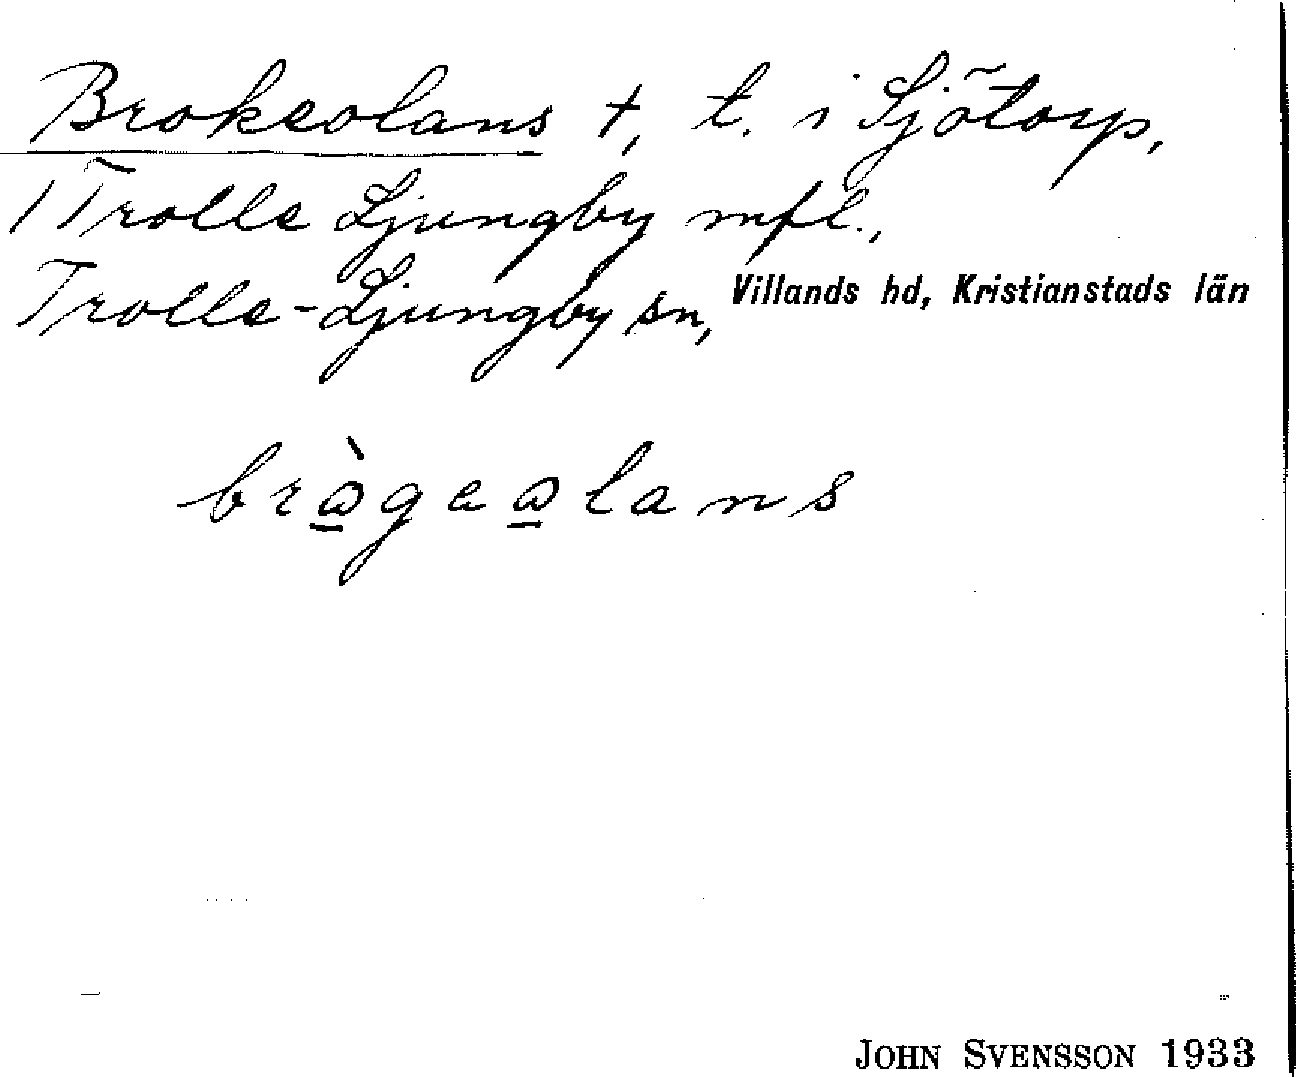 Brokeolans †, t. i Sjötorp,
1 Trolle Ljungby mfl.,
Trolle-Ljungby sn, Villands hd, Kristianstads län
brògeolans
JOHN SVENSSON 1933